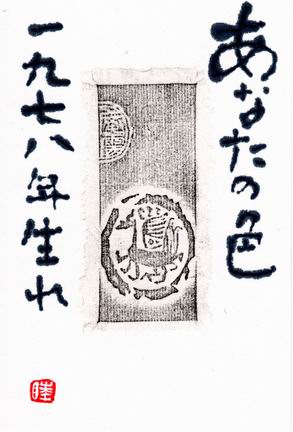 あなたの色
一九七八年生れ
睦